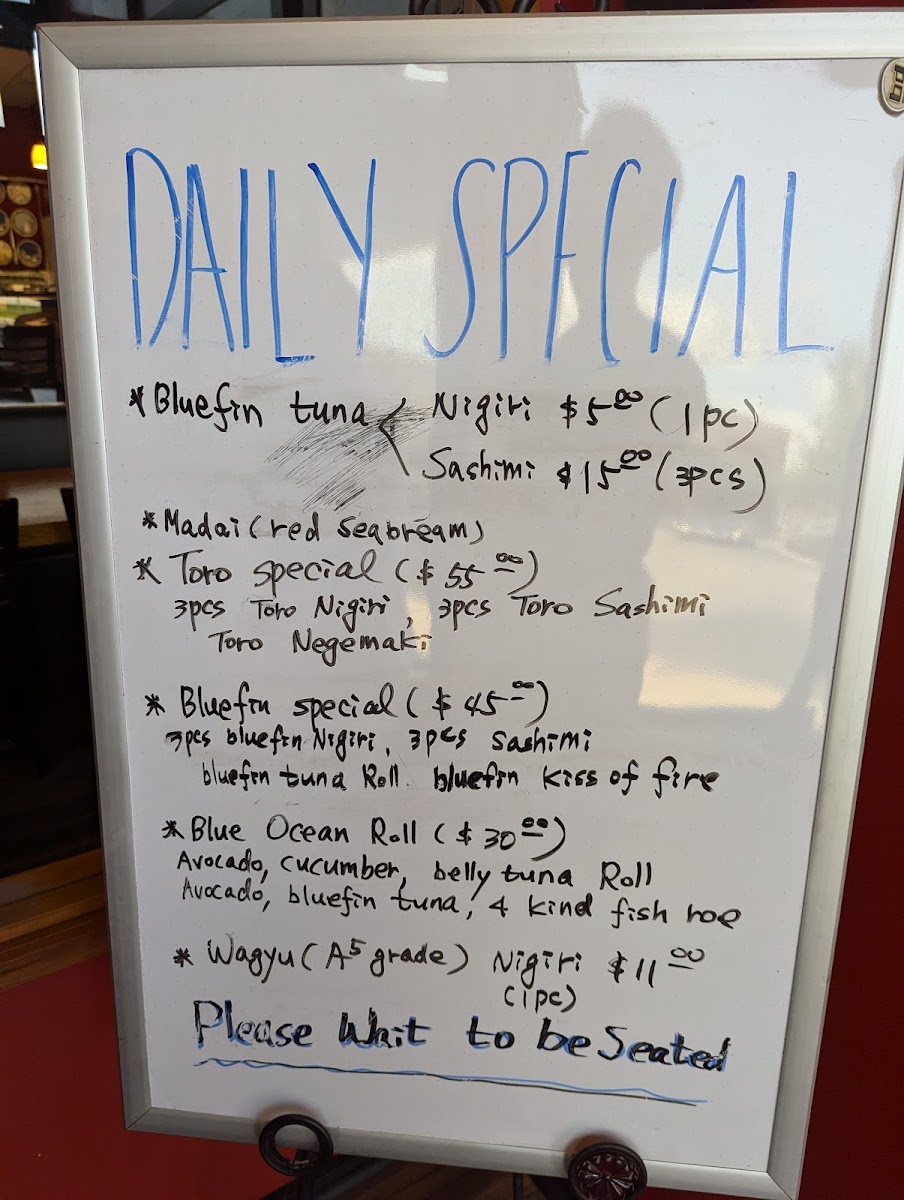 DAILY SPECIAL
* Bluefin tuna < Nigiri $5.00 (1pc)
Sashimi $15.00 (3pcs)
* Madai (red seabream)
* Toro special ($55.00)
3pcs Toro Nigiri, 3pcs Toro Sashimi
Toro Negemaki
* Bluefin special ($45.00)
3pcs bluefin Nigiri, 3pcs Sashimi
bluefin tuna Roll. bluefin kiss of fire
* Blue Ocean Roll ($30.00)
Avocado, cucumber, belly tuna Roll
Avocado, bluefin tuna, 4 kind fish roe
* Wagyu (A5 grade) Nigiri $11.00
(1pc)
Please Wait to be Seated